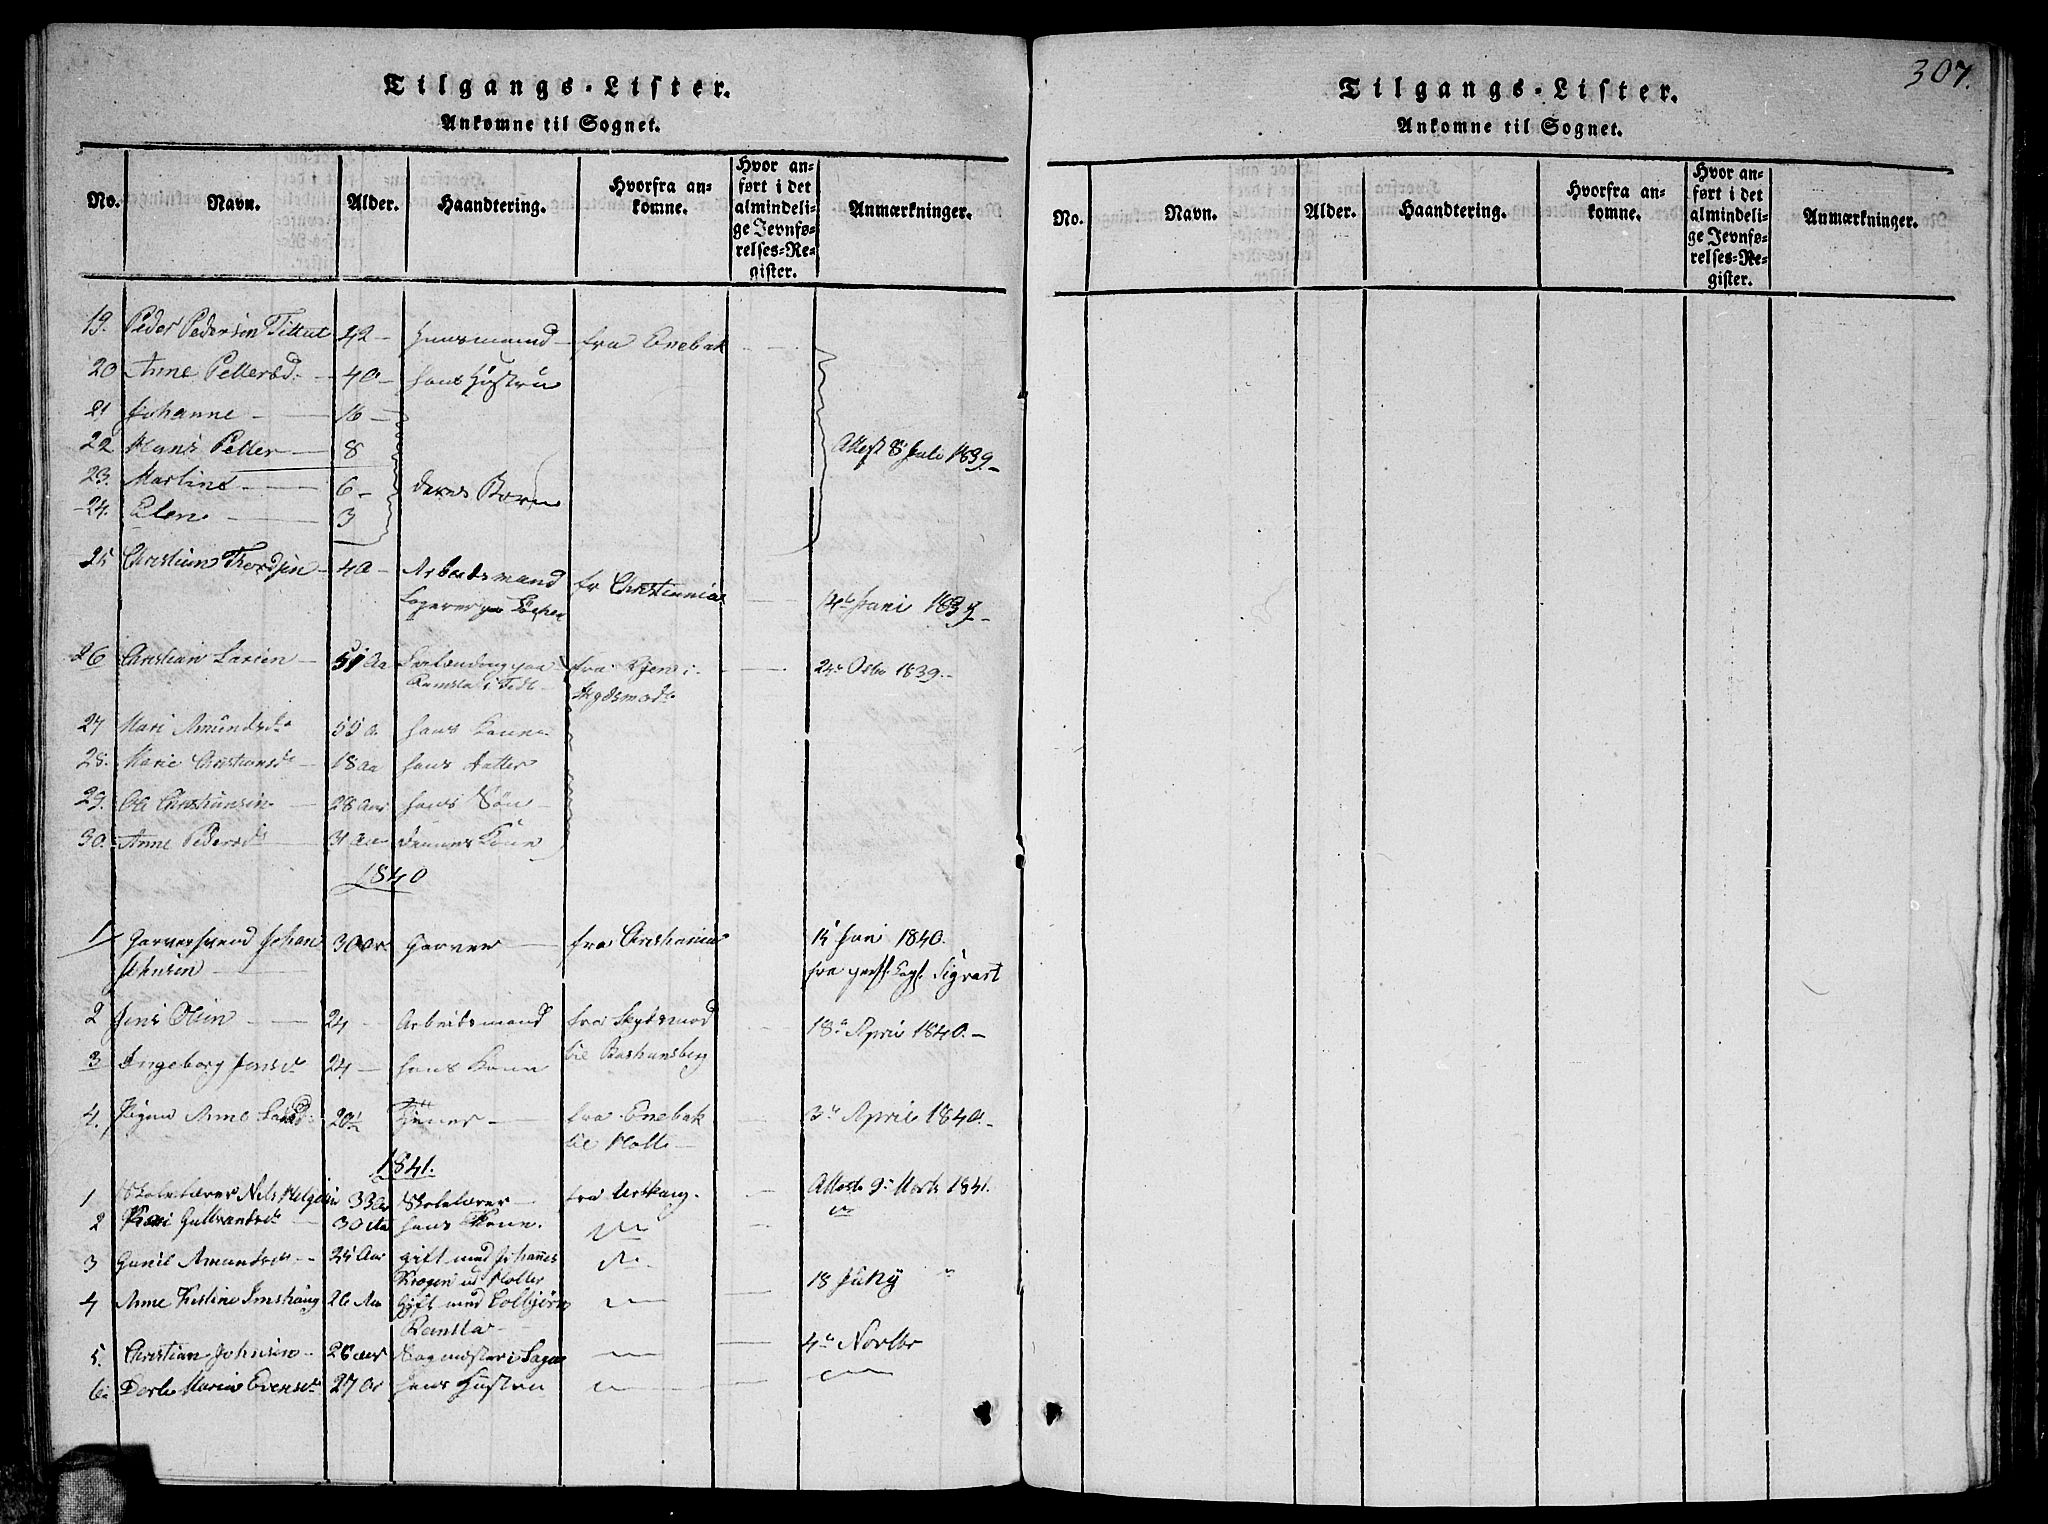 Tilgangs-Lister.
Ankomne til Sognet.
No. Navn. Alder. Haandtering. Hvorfra an=komne. Hvor an=ført i det almindeli=ge Jevnfø=relses=Re=gister. Anmærkninger.
19. Peder Pedersen 42 - Huusmand - fra Enebak
20 Anne Pettersd. - 40 - hans Hustru
21 Johanne - 16 -
22 Hans Petter - 8 Attest 8 Juli 1839 -
23. Martine - 6 - deres Børn
24. Elen - 3
25 Christian Thordsen - 40 - Arbeidsmand fr Christiania
Logerer paa 14de Juni 1839 -
26 Christian Larsen - 51 Aa paa fra i 24de Octbr 1839. -
Ramsta i Skydsmode
27 Mari Amundsdr 55 a hans Kone
28. Marie Christiansdr 18 aa hans Datter
29. Ole Christiansen 28 Aar hans Søn -
30. Anne Pedersdr 31 Aar dennes Kone
1840
1/ Garversvend Johan 30 Ar Garver - fra Christiania 15 Juni 1840.
Johnsen - fra Sigvart
2 Jens Olsen - 24 - Arbeidsmand fra Skydsmod 18de April 1840. -
3 Ingeborg Jensdr 24 - hans Kone til
4. Pigen Anne 20½ Tjener - fra Enebak 3de April 1840. -
til
1841.
1 Skolelærer Nils Helgesen 33 Aar Skolelærer - fra Urskoug. - Attest 9de Marts 1841.
2 Kari Gulbrandsdr - 30 Aar hans Kone.
3 Gunil Amundsdr - 24 Aar gift med Johannes
Krogen
4 Anne Kistine 26 Aar Gift med 18 July
Ramsta
5. Christian Johnsen - 26 aar Sagmester i - 4de Novbr
6. Dorte Marie Evensdr 27 Ar hans Hustru
307.
Tilgangs-Lister.
Ankomne til Sognet.
No. Navn. Alder. Haandtering. Hvorfra an=komne. Hvor an=ført i det almindeli=ge Jevnfø=relses=Re=gister. Anmærkninger.